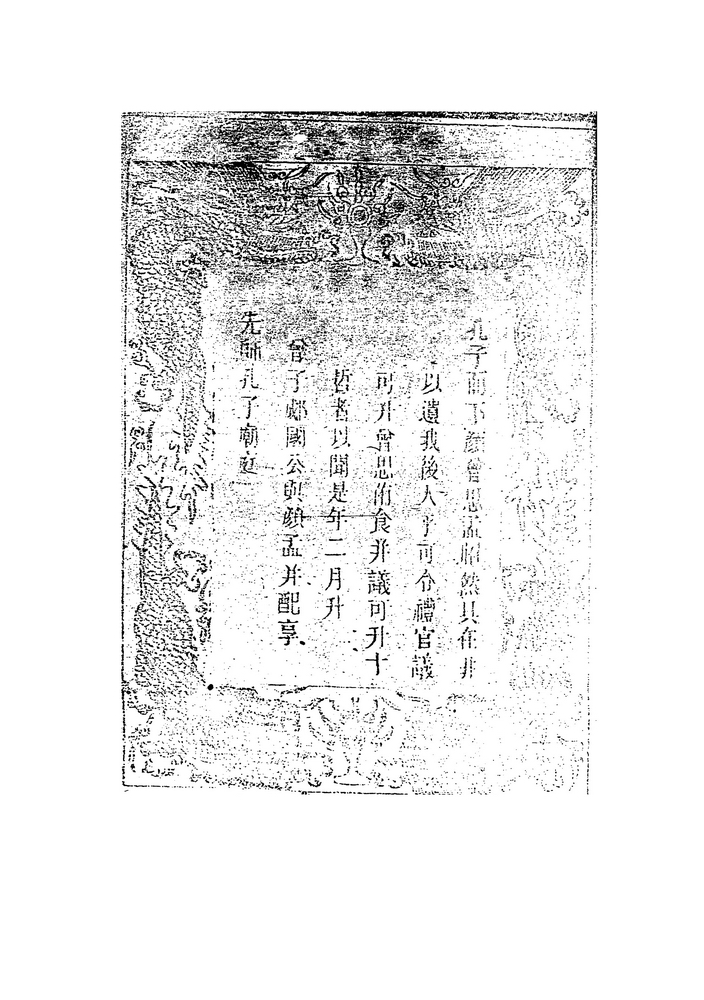 孔子而下顏曾思孟昭然具在非
以遺我後人乎可令禮官議
可升曾思侑食并議可升十
哲者以聞是年二月升
曾子郕國公與顏孟并配享
先師孔子廟庭